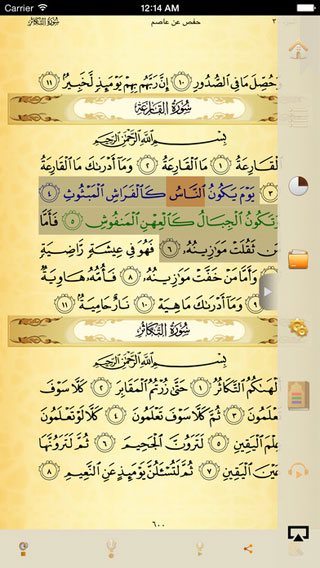 Carrier 12:14 AM
سورة التكاثر حفص عن عاصم ٣
وَحُصِّلَ مَا فِي ٱلصُّدُورِ ١٠ إِنَّ رَبَّهُم بِهِمْ يَوْمَئِذٍ لَّخَبِيرٌ ١١
سُورَةُ القَارِعَة
بِسْمِ ٱللَّهِ ٱلرَّحْمَٰنِ ٱلرَّحِيمِ
ٱلْقَارِعَةُ ١ مَا ٱلْقَارِعَةُ ٢ وَمَآ أَدْرَىٰكَ مَا ٱلْقَارِعَةُ
٣ يَوْمَ يَكُونُ ٱلنَّاسُ كَٱلْفَرَاشِ ٱلْمَبْثُوثِ ٤
وَتَكُونُ ٱلْجِبَالُ كَٱلْعِهْنِ ٱلْمَنفُوشِ ٥ فَأَمَّا
مَن ثَقُلَتْ مَوَٰزِينُهُۥ ٦ فَهُوَ فِي عِيشَةٍ رَّاضِيَةٍ
٧ وَأَمَّا مَنْ خَفَّتْ مَوَٰزِينُهُۥ ٨ فَأُمُّهُۥ هَاوِيَةٌ
٩ وَمَآ أَدْرَىٰكَ مَا هِيَهْ ١٠ نَارٌ حَامِيَةٌۢ ١١
سُورَةُ التَّكَاثُر
بِسْمِ ٱللَّهِ ٱلرَّحْمَٰنِ ٱلرَّحِيمِ
أَلْهَىٰكُمُ ٱلتَّكَاثُرُ ١ حَتَّىٰ زُرْتُمُ ٱلْمَقَابِرَ ٢ كَلَّا سَوْفَ
تَعْلَمُونَ ٣ ثُمَّ كَلَّا سَوْفَ تَعْلَمُونَ ٤ كَلَّا لَوْ تَعْلَمُونَ
عِلْمَ ٱلْيَقِينِ ٥ لَتَرَوُنَّ ٱلْجَحِيمَ ٦ ثُمَّ لَتَرَوُنَّهَا
عَيْنَ ٱلْيَقِينِ ٧ ثُمَّ لَتُسْـَٔلُنَّ يَوْمَئِذٍ عَنِ ٱلنَّعِيمِ ٨
٦٠٠